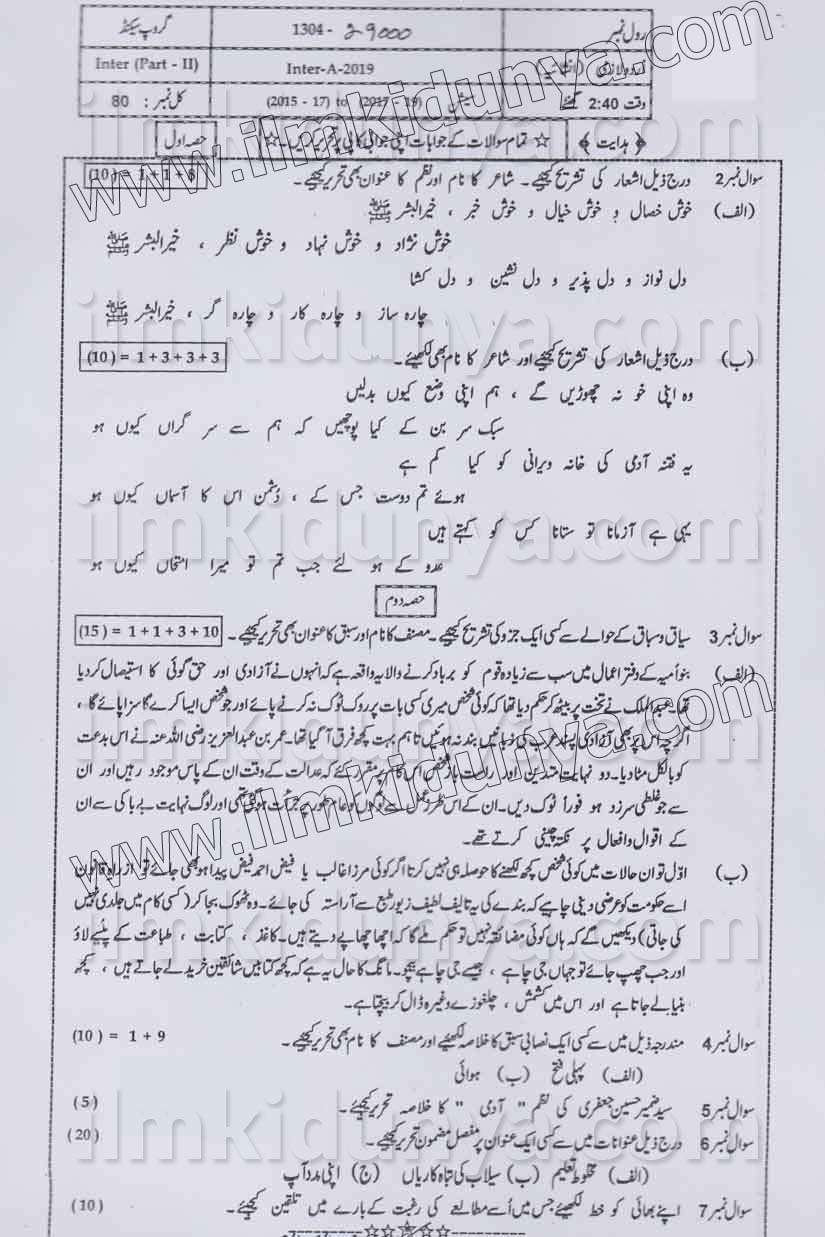 رول نمبر 1304 - 29000 گروپ سیکنڈ
اردو لازمی (انشائیہ) Inter-A-2019 Inter (Part - II)
وقت 2:40 گھنٹے سیشن (2015 - 17) to (2017 - 19) کل نمبر : 80
﴿ ہدایت ﴾ ☆ تمام سوالات کے جوابات اپنی جوابی کاپی پر تحریر کریں۔ ☆ حصہ اول
سوال نمبر 2 درج ذیل اشعار کی تشریح کیجیے۔ شاعر کا نام اور نظم کا عنوان بھی تحریر کیجیے۔ (10) = 1 + 1 + 8
(الف) خوش خصال و خوش خیال و خوش خبر ، خیرالبشر ﷺ
خوش نژاد و خوش نہاد و خوش نظر ، خیرالبشر ﷺ
دل نواز و دل پذیر و دل نشین و دل کشا
چارہ ساز و چارہ کار و چارہ گر ، خیرالبشر ﷺ
(ب) درج ذیل اشعار کی تشریح کیجیے اور شاعر کا نام بھی لکھیئے۔ (10) = 1 + 3 + 3 + 3
وہ اپنی خو نہ چھوڑیں گے ، ہم اپنی وضع کیوں بدلیں
سبک سر بن کے کیا پوچھیں کہ ہم سے سر گراں کیوں ہو
یہ فتنہ آدمی کی خانہ ویرانی کو کیا کم ہے
ہوئے تم دوست جس کے ، دشمن اس کا آسماں کیوں ہو
یہی ہے آزمانا تو ستانا کس کو کہتے ہیں
عدو کے ہو لئے جب تم تو میرا امتحاں کیوں ہو
حصہ دوم
سوال نمبر 3 سیاق و سباق کے حوالے سے کسی ایک جزو کی تشریح کیجیے۔ مصنف کا نام اور سبق کا عنوان بھی تحریر کیجیے۔ (15) = 1 + 1 + 3 + 10
(الف) بنو اُمیہ کے دفتر اعمال میں سب سے زیادہ قوم کو برباد کرنے والا یہ واقعہ ہے کہ انہوں نے آزادی اور حق گوئی کا استیصال کر دیا
تھا۔ عبدالملک نے تخت پر بیٹھ کر حکم دیا تھا کہ کوئی شخص میری کسی بات پر روک ٹوک نہ کرنے پائے اور جو شخص ایسا کرے گا سزا پائے گا ،
اگرچہ اس پر بھی آزادی پسند عرب کی زبانیں بند نہ ہوئیں تاہم بہت کچھ فرق آ گیا تھا۔ عمر بن عبدالعزیز رضی اللہ عنہ نے اس بدعت
کو بالکل مٹا دیا۔ دو نہایت متدین اور راست باز شخص اس کام پر مقرر کئے کہ عدالت کے وقت ان کے پاس موجود رہیں اور ان
سے جو غلطی سرزد ہو فوراً ٹوک دیں۔ ان کے اس طرز عمل سے لوگوں کو عام طور پر جرأت ہو گئی تھی اور لوگ نہایت بے باکی سے ان
کے اقوال و افعال پر نکتہ چینی کرتے تھے۔
(ب) اوّل تو ان حالات میں کوئی شخص کچھ لکھنے کا حوصلہ ہی نہیں کرتا اگر کوئی مرزا غالب یا فیض احمد فیض پیدا ہو بھی جائے تو از راہِ قانون
اسے حکومت کو عرضی دینی چاہیے کہ بندے کی یہ تالیف لطیف زیور طبع سے آراستہ کی جائے۔ وہ ٹھوک بجا کر (کسی کام میں جلدی نہیں
کی جاتی) دیکھیں گے کہ ہاں کوئی مضائقہ نہیں تو حکم ملے گا کہ اچھا چھاپے دیتے ہیں۔ کاغذ ، کتابت ، طباعت کے پیسے لاؤ
اور جب چھپ جائے تو جہاں جی چاہے ، جیسے جی چاہے بیچو۔ مانگ کا حال یہ ہے کہ کچھ کتابیں شائقین خرید لے جاتے ہیں ، کچھ
بنیا لے جاتا ہے اور اس میں کشمش ، چلغوزے وغیرہ ڈال کر بیچتا ہے۔
سوال نمبر 4 مندرجہ ذیل میں سے کسی ایک نصابی سبق کا خلاصہ لکھیئے اور مصنف کا نام بھی تحریر کیجیے۔ (10) = 1 + 9
(الف) پہلی فتح (ب) ہوائی
سوال نمبر 5 سید ضمیر حسین جعفری کی نظم " آدمی " کا خلاصہ تحریر کیجیے۔ (5)
سوال نمبر 6 درج ذیل عنوانات میں سے کسی ایک عنوان پر مفصل مضمون تحریر کیجیے۔ (20)
(الف) مخلوط تعلیم (ب) سیلاب کی تباہ کاریاں (ج) اپنی مدد آپ
سوال نمبر 7 اپنے بھائی کو خط لکھیئے جس میں اُسے مطالعے کی رغبت کے بارے میں تلقین کیجیے۔ (10)
www.ilmkidunya.com
www.ilmkidunya.com
ilmkidunya.com
ilmkidunya.com
ilmkidunya.com
ilmkidunya.com
ilmkidunya.com
ilmkidunya.com